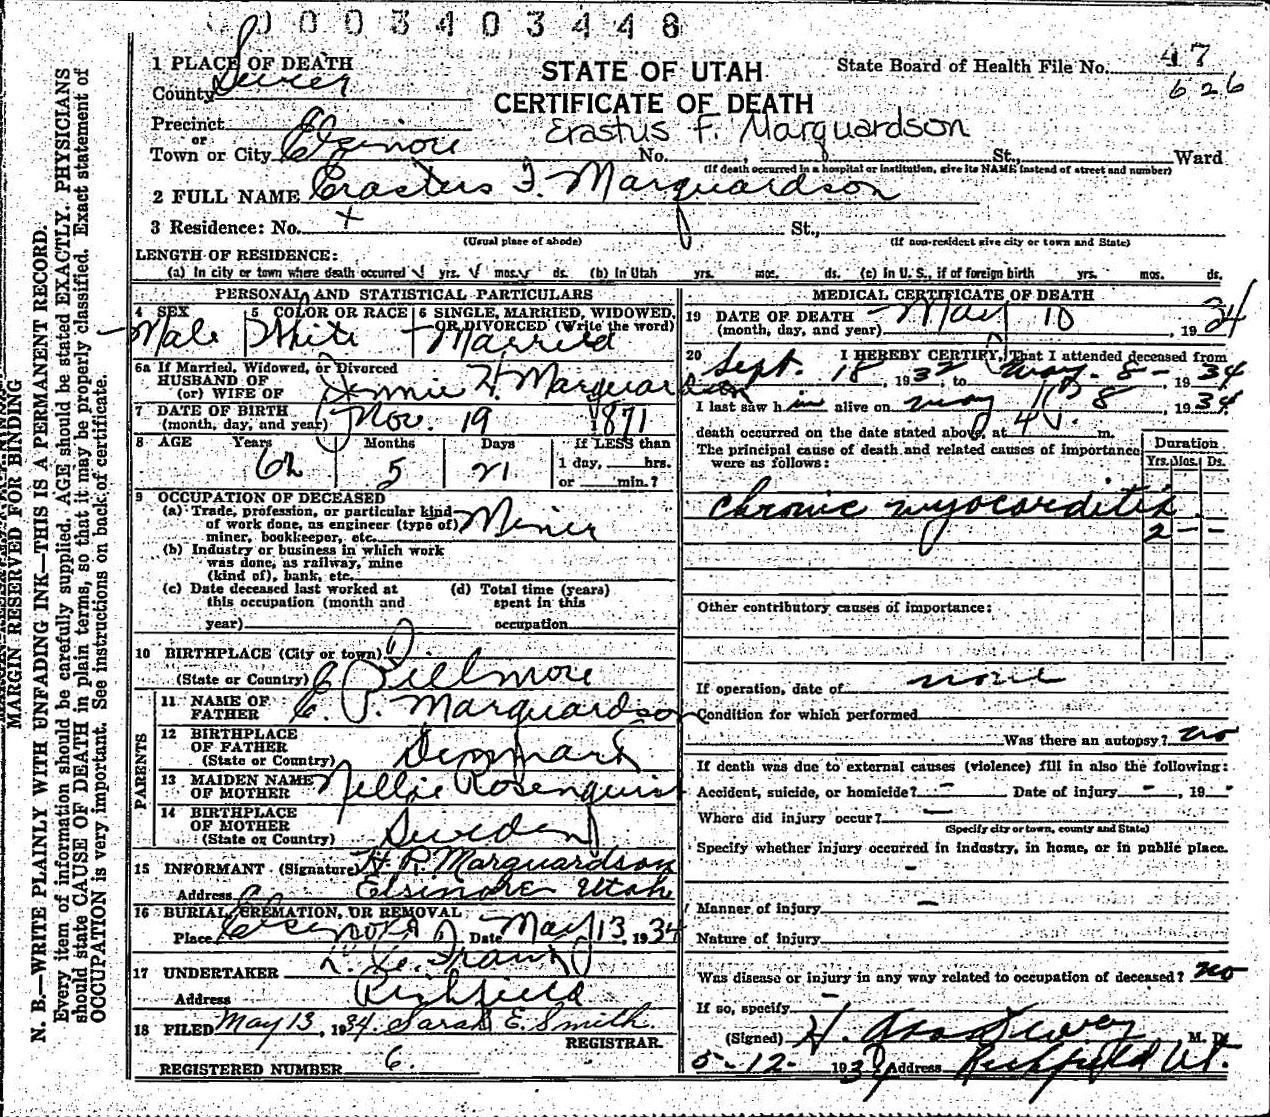 0003403448
1 PLACE OF DEATH
County Sevier
STATE OF UTAH
CERTIFICATE OF DEATH
State Board of Health File No. 47
626
Precinct
or
Town or City Elsinore
Erastus F. Marquardson
No. St., Ward
(If death occurred in a hospital or institution, give its NAME instead of street and number)
2 FULL NAME Erastus F. Marquardson
3 Residence: No. x St.,
(Usual place of abode) (If non-resident give city or town and State)
LENGTH OF RESIDENCE:
(a) In city or town where death occurred yrs. mos. ds. (b) In Utah yrs. mos. ds. (c) In U. S., if of foreign birth yrs. mos. ds.
PERSONAL AND STATISTICAL PARTICULARS
4 SEX 5 COLOR OR RACE 6 SINGLE, MARRIED, WIDOWED,
OR DIVORCED (Write the word)
Male White Married
6a If Married, Widowed, or Divorced
HUSBAND OF
(or) WIFE OF Jennie H. Marquardson
7 DATE OF BIRTH
(month, day, and year) Nov. 19 1871
8 AGE Years Months Days If LESS than
62 5 21 1 day, hrs.
or min.?
9 OCCUPATION OF DECEASED
(a) Trade, profession, or particular kind
of work done, as engineer (type of)
miner, bookkeeper, etc. Miner
(b) Industry or business in which work
was done, as railway, mine
(kind of), bank, etc.
(c) Date deceased last worked at (d) Total time (years)
this occupation (month and spent in this
year) occupation
10 BIRTHPLACE (City or town)
(State or Country) Fillmore
PARENTS
11 NAME OF
FATHER Marquardson
12 BIRTHPLACE
OF FATHER Denmark
(State or Country)
13 MAIDEN NAME
OF MOTHER Nellie Rosenquist
14 BIRTHPLACE
OF MOTHER Sweden
(State or Country)
15 INFORMANT (Signature) H. R. Marquardson
Address Elsinore Utah
16 BURIAL, CREMATION, OR REMOVAL
Place Elsinore Date May 13, 1934
17 UNDERTAKER
Address Richfield
18 FILED May 13, 1934. Sarah E. Smith
REGISTRAR.
REGISTERED NUMBER 6.
MEDICAL CERTIFICATE OF DEATH
19 DATE OF DEATH
(month, day, and year) May 10, 1934
20 I HEREBY CERTIFY, That I attended deceased from
Sept. 18, 1932, to May 8-, 1934
I last saw him alive on May 8, 1934.
death occurred on the date stated above, at 4 m.
The principal cause of death and related causes of importance
were as follows:
Duration
Yrs. Mos. Ds.
chronic myocarditis
2 - -
Other contributory causes of importance:
If operation, date of none
Condition for which performed
Was there an autopsy? no
If death was due to external causes (violence) fill in also the following:
Accident, suicide, or homicide? - Date of injury -, 19 -
Where did injury occur? -
(Specify city or town, county and State)
Specify whether injury occurred in industry, in home, or in public place.
-
Manner of injury -
Nature of injury
Was disease or injury in any way related to occupation of deceased? no
If so, specify -
(Signed) H. M. D.
5-12- 1934 Address Richfield Ut.
MARGIN RESERVED FOR BINDING
N. B.—WRITE PLAINLY WITH UNFADING INK—THIS IS A PERMANENT RECORD.
Every item of information should be carefully supplied. AGE should be stated EXACTLY. PHYSICIANS
should state CAUSE OF DEATH in plain terms, so that it may be properly classified. Exact statement of
OCCUPATION is very important. See instructions on back of certificate.